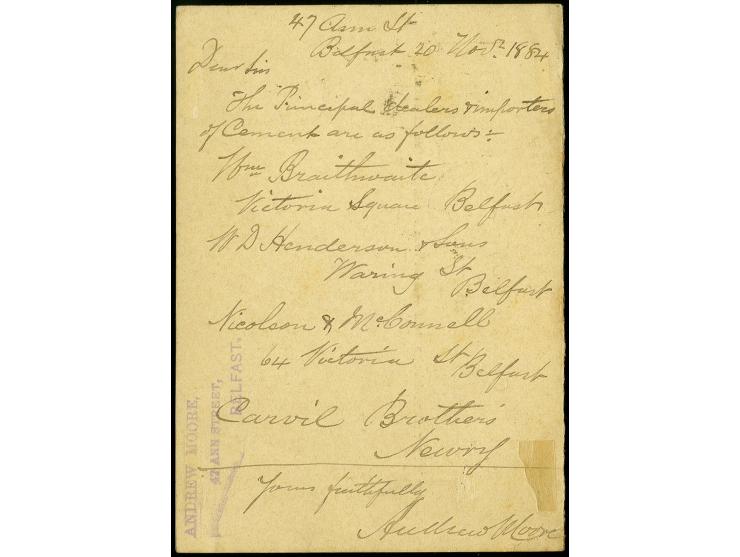 47 Ann St
Belfast 20 Novr. 1884
Dear Sir
The Principal dealers & importers
of Cement are as follows:-
Wm Braithwaite
Victoria Square Belfast
W D Henderson & Sons
Waring St
Belfast
Nicolson & McConnell
64 Victoria St
Belfast
Carvil Brothers
Newry
Yours faithfully
Andrew Moore
ANDREW MOORE,
47 ANN STREET,
BELFAST.